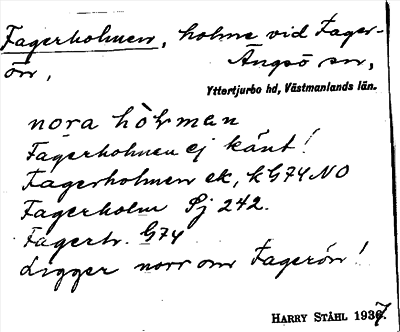 Fagerholmen, holme vid Fager-
ön, Ängsö sn,
Yttertjurbo hd, Västmanlands län.
nora hòlmen
Fagerholmen ej känt!
Fagerholmen ek, k G74 NO
Fagerholm Sj 242.
Fagerh. G74
Ligger norr om Fagerön!
HARRY STÅHL 1937.